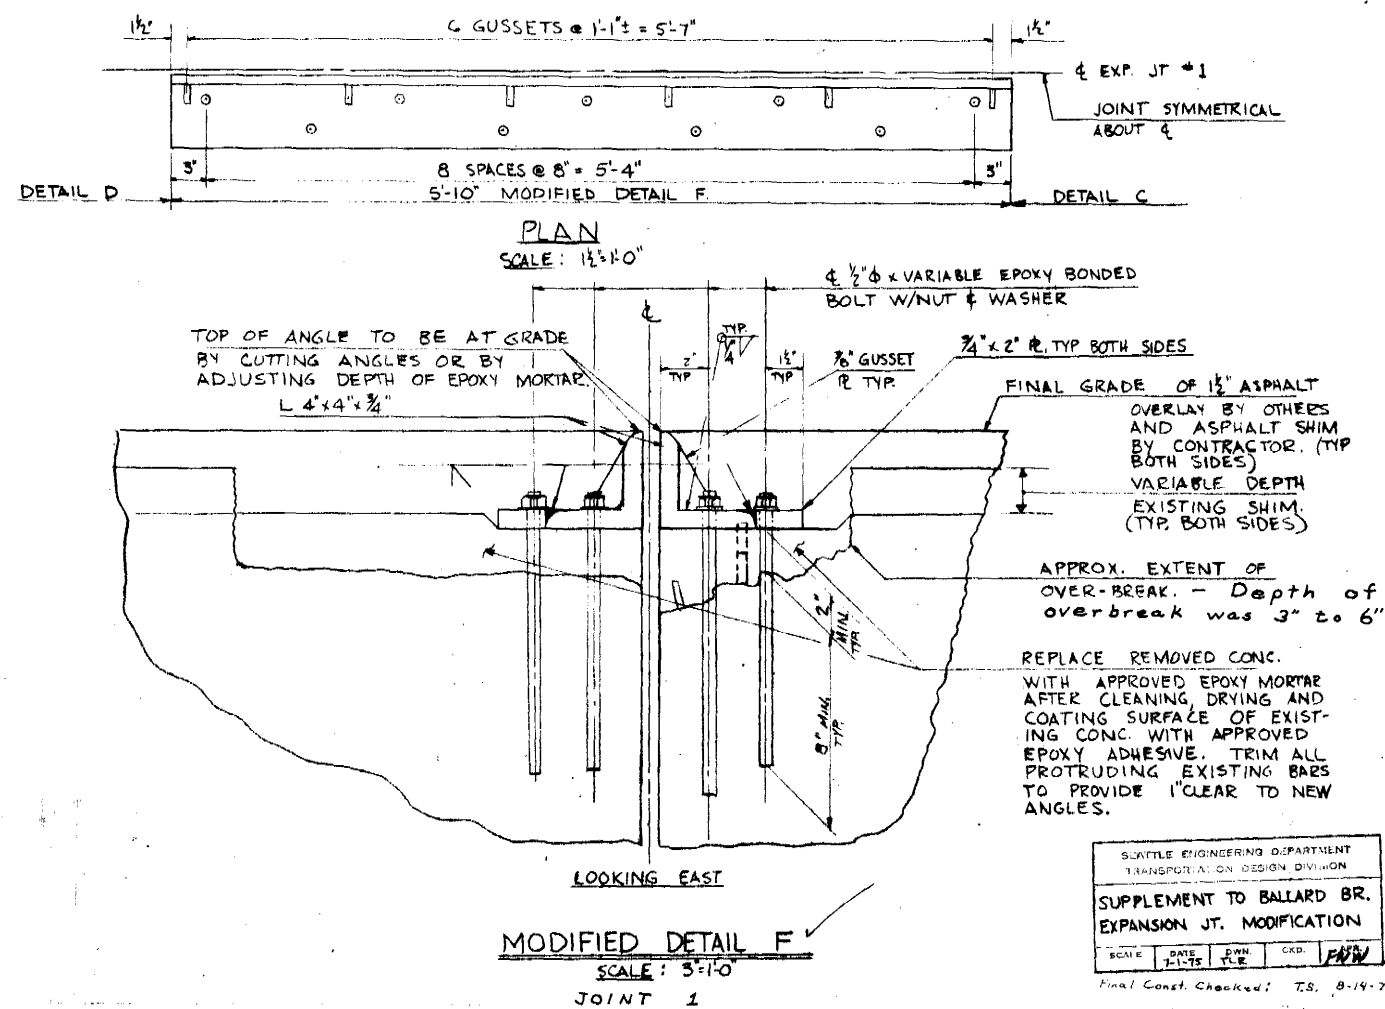 1½" 6 GUSSETS @ 1'-1"± = 5'-7" 1½"
℄ EXP. JT #1
JOINT SYMMETRICAL
ABOUT ℄
3" 8 SPACES @ 8" = 5'-4" 3"
DETAIL D 5'-10" MODIFIED DETAIL F. DETAIL C
PLAN
SCALE: 1½"=1'-0"
℄ ½"ϕ x VARIABLE EPOXY BONDED
BOLT W/NUT & WASHER
℄
TOP OF ANGLE TO BE AT GRADE
BY CUTTING ANGLES OR BY
ADJUSTING DEPTH OF EPOXY MORTAR.
L 4"x4"x¾"
TYP.
¼
2"
TYP
1½"
TYP
⅜" GUSSET
℄ TYP.
¾" x 2" ℄, TYP BOTH SIDES
FINAL GRADE OF 1½" ASPHALT
OVERLAY BY OTHERS
AND ASPHALT SHIM
BY CONTRACTOR. (TYP
BOTH SIDES)
VARIABLE DEPTH
EXISTING SHIM.
(TYP. BOTH SIDES)
APPROX. EXTENT OF
OVER-BREAK. - Depth of
overbreak was 3" to 6"
2"
MIN.
TYP.
8" MIN.
TYP.
REPLACE REMOVED CONC.
WITH APPROVED EPOXY MORTAR
AFTER CLEANING, DRYING AND
COATING SURFACE OF EXIST-
ING CONC. WITH APPROVED
EPOXY ADHESIVE. TRIM ALL
PROTRUDING EXISTING BARS
TO PROVIDE 1" CLEAR TO NEW
ANGLES.
LOOKING EAST
MODIFIED DETAIL F
SCALE: 3"=1'-0"
JOINT 1
SEATTLE ENGINEERING DEPARTMENT
TRANSPORTATION DESIGN DIVISION
SUPPLEMENT TO BALLARD BR.
EXPANSION JT. MODIFICATION
SCALE DATE DWN. CKD. APR.
7-1-75 TLR FNW
Final Const. Checked: T.S. 8-14-7